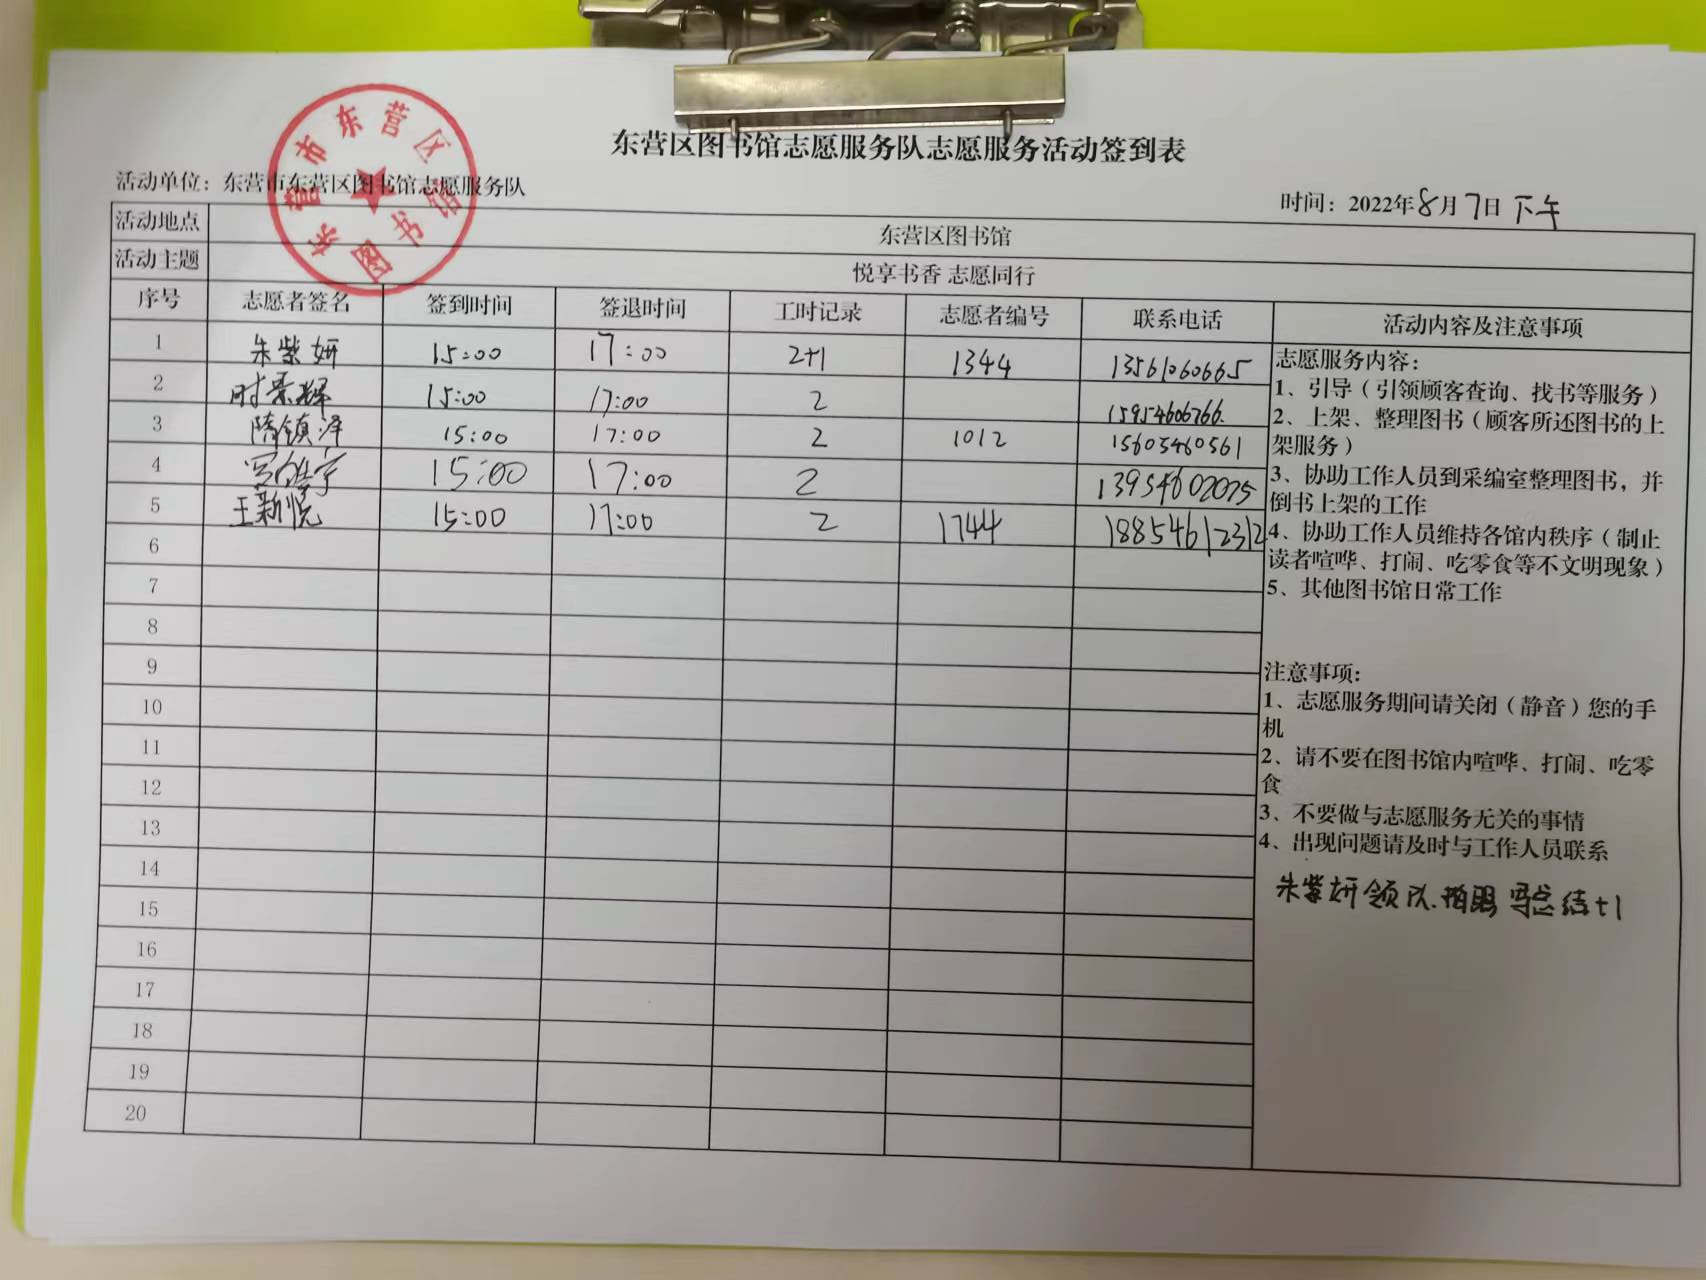 东营区图书馆志愿服务队志愿服务活动签到表
活动单位：东营市东营区图书馆志愿服务队
时间：2022年8月7日 下午
东营市东营区图书馆
活动地点 东营区图书馆
活动主题 悦享书香 志愿同行
序号 志愿者签名 签到时间 签退时间 工时记录 志愿者编号 联系电话 活动内容及注意事项
1 朱紫妍 15:00 17:00 2+1 1344 13561060665
2 时景辉 15:00 17:00 2 15954606766
3 隋镇泽 15:00 17:00 2 1012 15605460561
4 15:00 17:00 2 13954602075
5 王新悦 15:00 17:00 2 1744 18854612312
6
7
8
9
10
11
12
13
14
15
16
17
18
19
20
志愿服务内容：
1、引导（引领顾客查询、找书等服务）
2、上架、整理图书（顾客所还图书的上
架服务）
3、协助工作人员到采编室整理图书，并
倒书上架的工作
4、协助工作人员维持各馆内秩序（制止
读者喧哗、打闹、吃零食等不文明现象）
5、其他图书馆日常工作
注意事项：
1、志愿服务期间请关闭（静音）您的手
机
2、请不要在图书馆内喧哗、打闹、吃零
食
3、不要做与志愿服务无关的事情
4、出现问题请及时与工作人员联系
朱紫妍领队.拍照 写总结+1